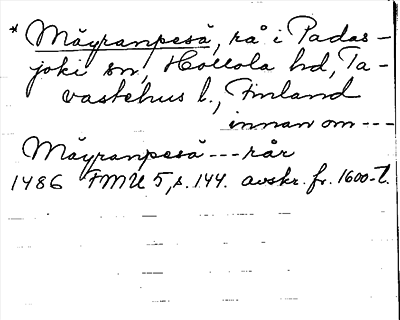 * Mäyranpesä, rå i Padas-
joki sn, Hollola hd, Ta-
vastehus l., Finland
innan om ---
Mäyranpesä --- rår
1486 FMU 5, s. 144. avskr. fr. 1600-t.